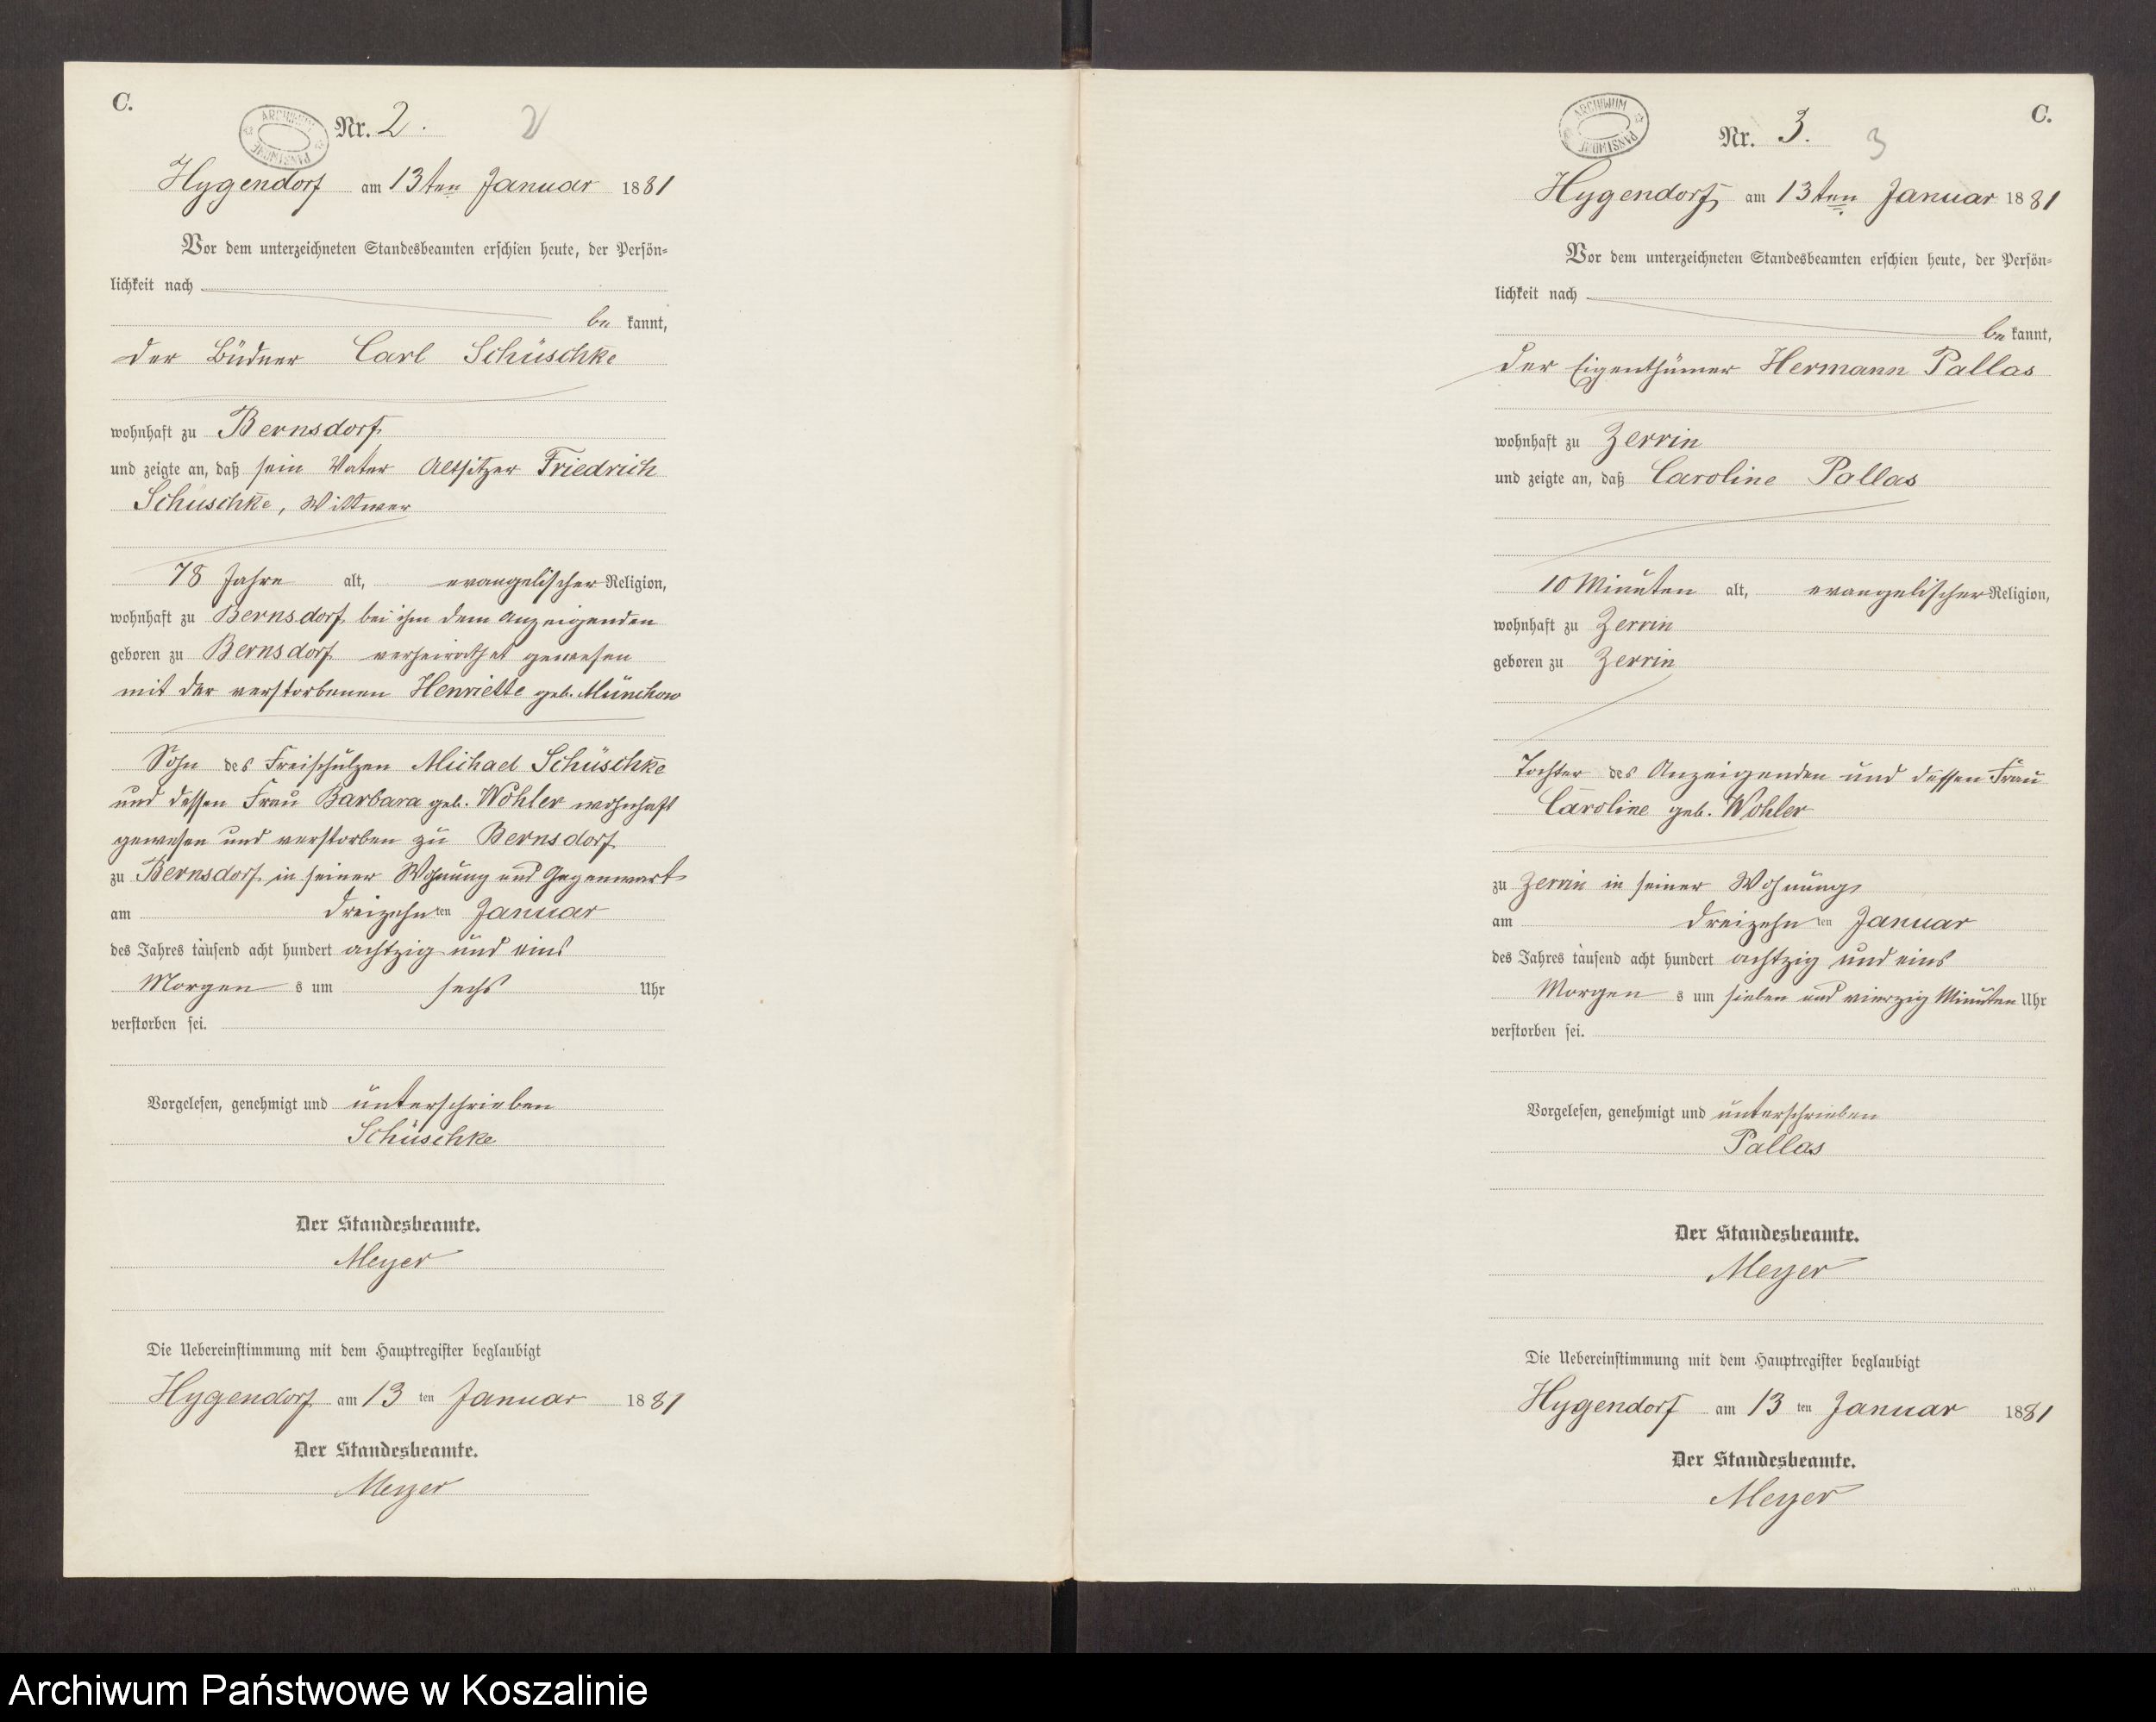 C.
ARCHIWUM PAŃSTWOWE
Nr. 2. 2
Hygendorf am 13ten Januar 1881
Vor dem unterzeichneten Standesbeamten erschien heute, der Persön-
lichkeit nach
be kannt,
der Büdner Carl Schüschke
wohnhaft zu Bernsdorf
und zeigte an, daß sein Vater Altsitzer Friedrich
Schüschke, Wittwer
78 Jahre alt, evangelischer Religion,
wohnhaft zu Bernsdorf bei ihm dem Anzeigenden
geboren zu Bernsdorf verheirathet gewesen
mit der verstorbenen Henriette geb. Münchow
Sohn des Freischulzen Michael Schüschke
und dessen Frau Barbara geb. Wohler wohnhaft
gewesen und verstorben zu Bernsdorf
zu Bernsdorf in seiner Wohnung und Gegenwart
am dreizehn ten Januar
des Jahres tausend acht hundert achtzig und eins
Morgen s um sechs Uhr
verstorben sei.
Vorgelesen, genehmigt und unterschrieben
Schüschke
Der Standesbeamte.
Meyer
Die Uebereinstimmung mit dem Hauptregister beglaubigt
Hygendorf am 13 ten Januar 1881
Der Standesbeamte.
Meyer
C.
ARCHIWUM PAŃSTWOWE
Nr. 3. 3
Hygendorf am 13ten Januar 1881
Vor dem unterzeichneten Standesbeamten erschien heute, der Persön-
lichkeit nach
be kannt,
der Eigenthümer Hermann Pallas
wohnhaft zu Zerrin
und zeigte an, daß Caroline Pallas
10 Minuten alt, evangelischer Religion,
wohnhaft zu Zerrin
geboren zu Zerrin
Tochter des Anzeigenden und dessen Frau
Caroline geb. Wohler
zu Zerrin in seiner Wohnung
am dreizehn ten Januar
des Jahres tausend acht hundert achtzig und eins
Morgen s um sieben und vierzig Minuten Uhr
verstorben sei.
Vorgelesen, genehmigt und unterschrieben
Pallas
Der Standesbeamte.
Meyer
Die Uebereinstimmung mit dem Hauptregister beglaubigt
Hygendorf am 13 ten Januar 1881
Der Standesbeamte.
Meyer
Archiwum Państwowe w Koszalinie